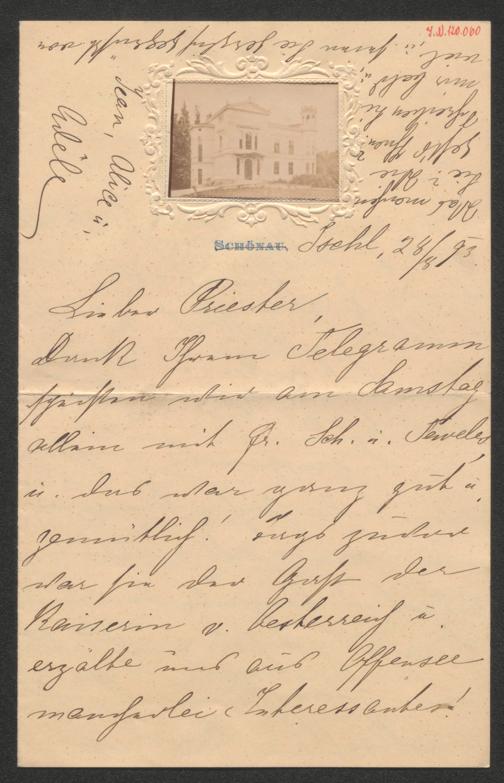 J.N. 120.060
Schönau, Ischl, 28/8 93
Lieber Priester,
Dank Ihrem Telegramm
speisten wir am Samstag
allein mit Fr. Sch. u. Jeweles
u. das war ganz gut u.
gemütlich! Tags zuvor
war sie der Gast der
Kaiserin v. Oesterreich u.
erzälte uns aus Offensee
mancherlei Interessantes!
Was machen
Sie? Ihre
Schreiben Sie
uns bald u.
viel u. seien Sie herzlich gegrüßt von
Jean, Alice u.
Adèle